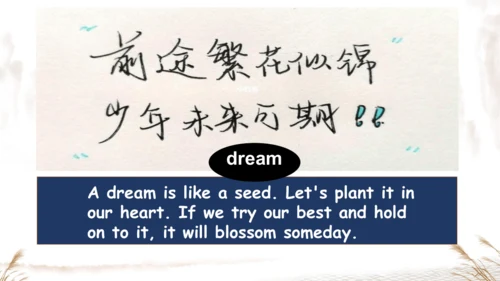 前途繁花似锦
少年未来可期!!
dream
A dream is like a seed. Let's plant it in
our heart. If we try our best and hold
on to it, it will blossom someday.